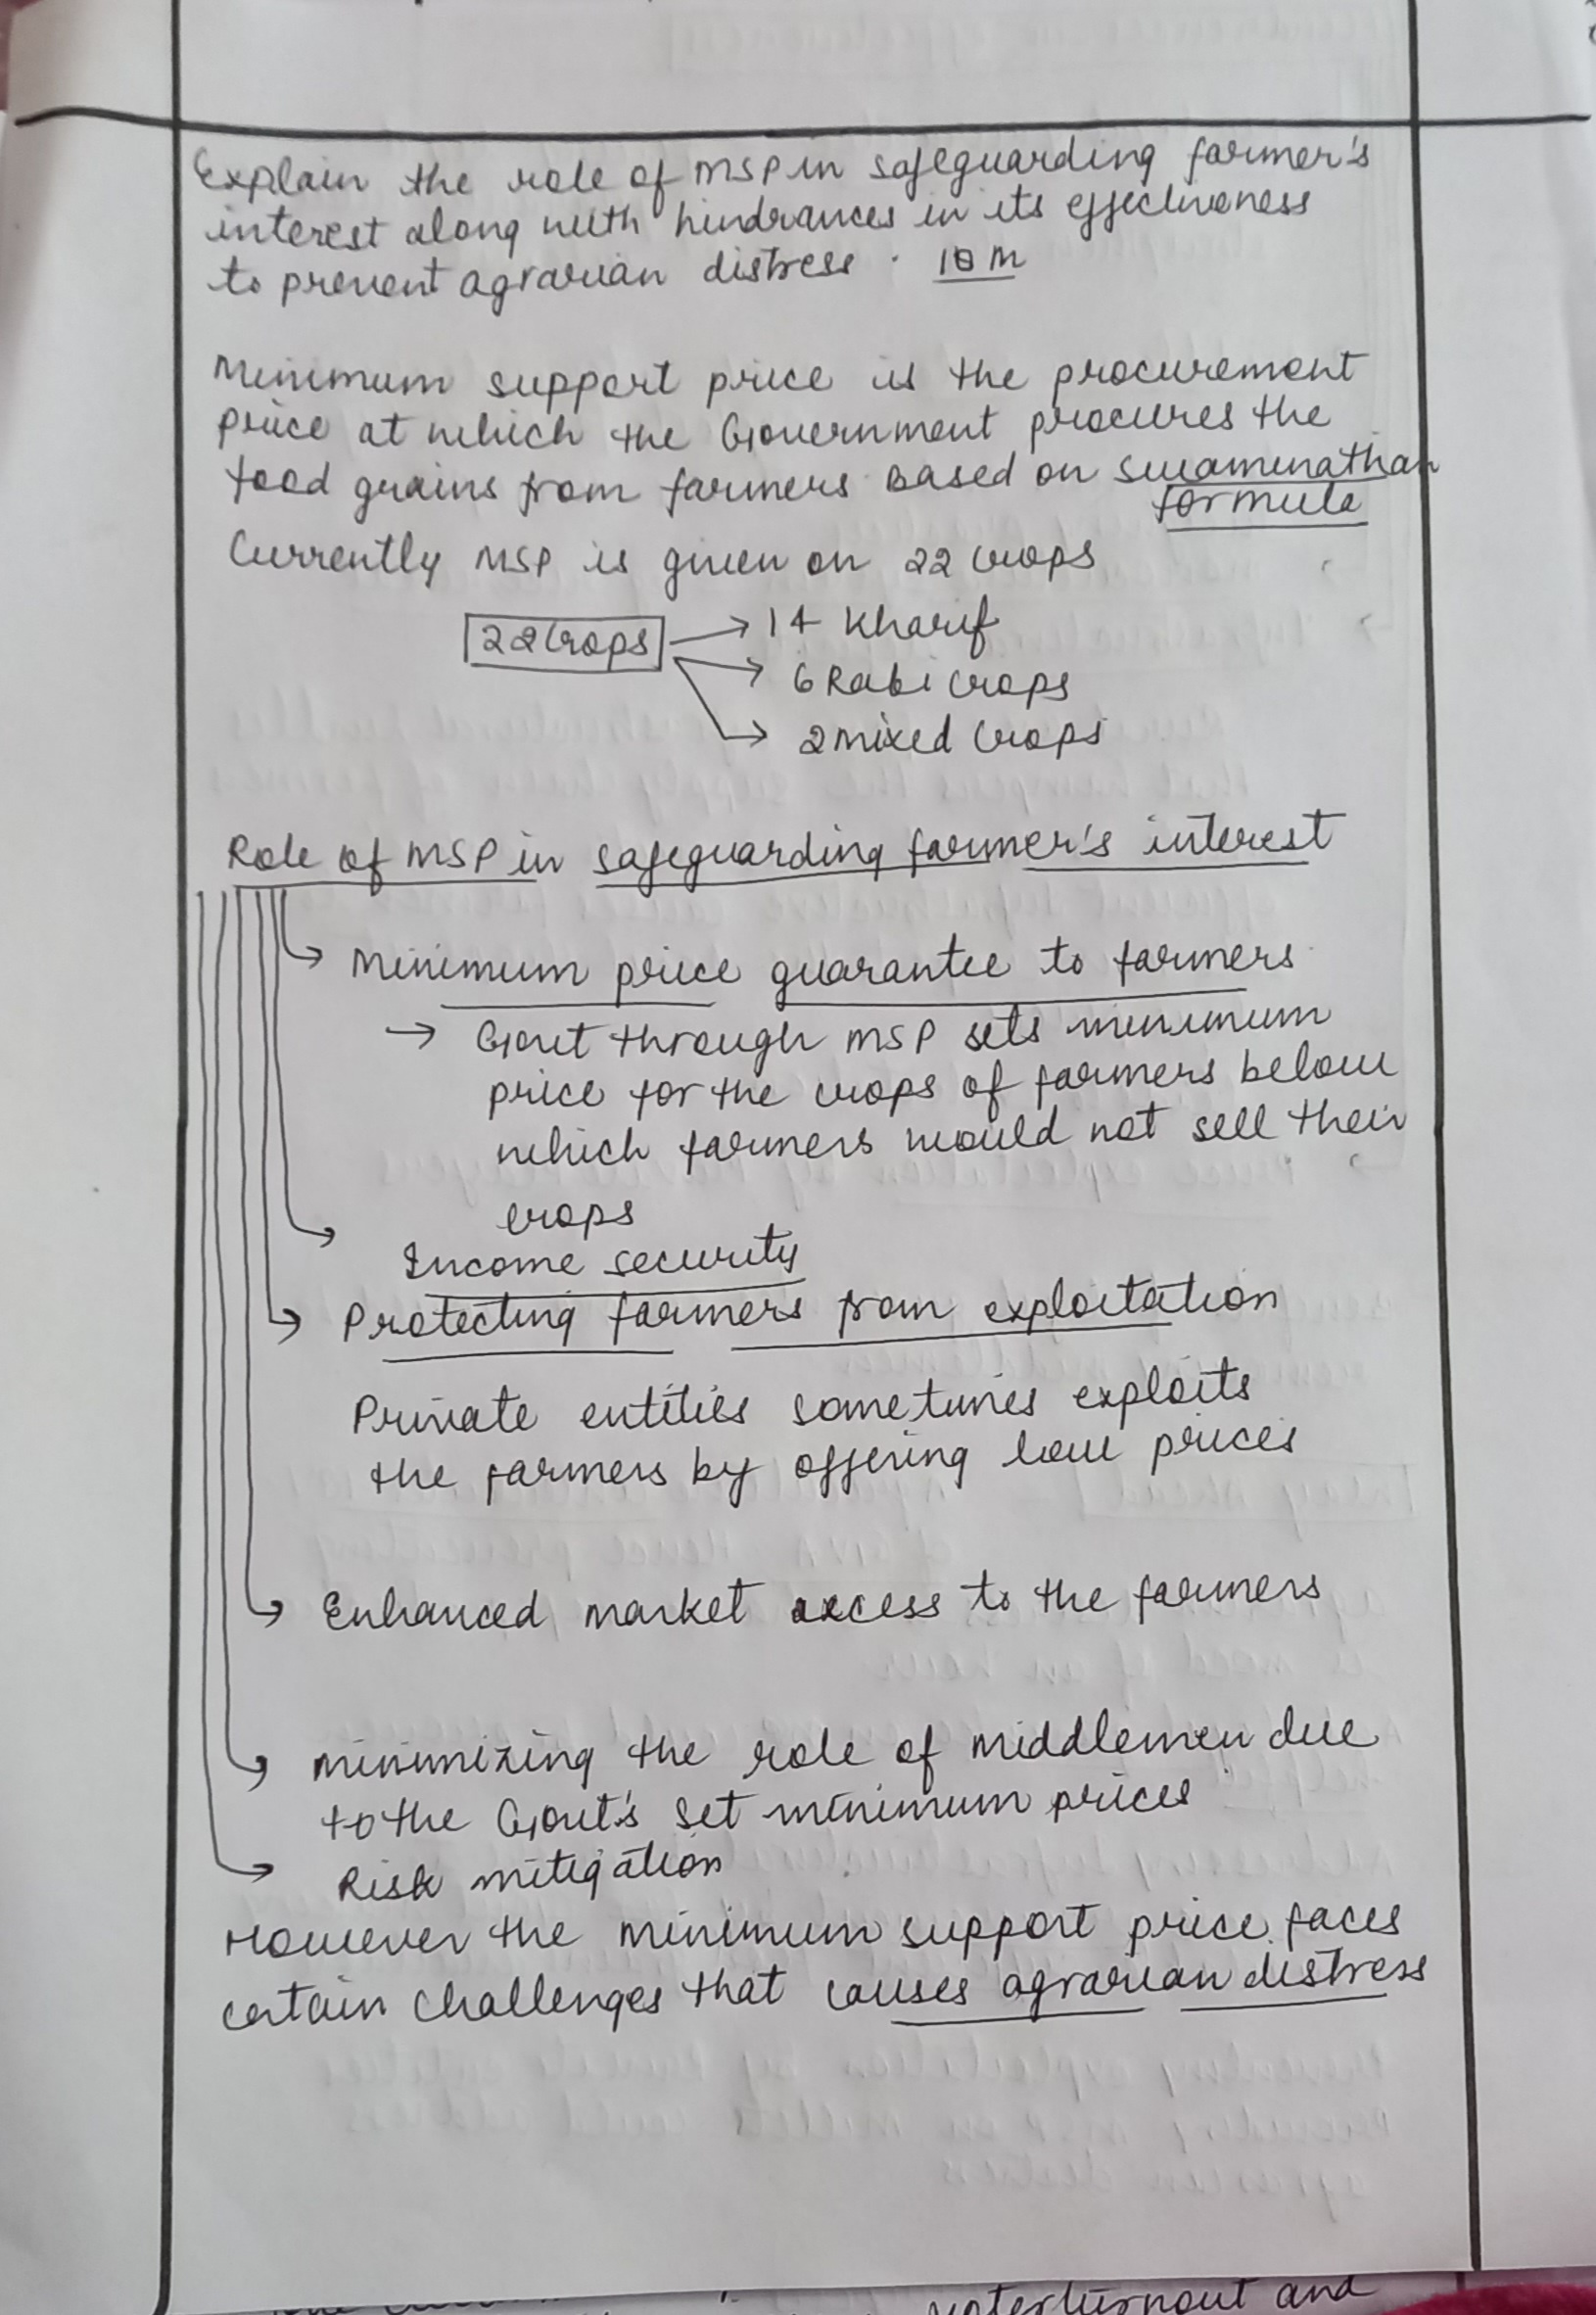 Explain the role of MSP in safeguarding farmer's
interest along with hindrances in its effectiveness
to prevent agrarian distress. 10 m
Minimum support price is the procurement
price at which the Government procures the
food grains from farmers based on Swaminathan
formula
Currently MSP is given on 22 crops
22 Crops
14 Kharif
6 Rabi crops
2 mixed Crops
Role of MSP in safeguarding farmer's interest
Minimum price guarantee to farmers
→ Govt through MSP sets minimum
price for the crops of farmers below
which farmers would not sell their
crops
Income security
Protecting farmers from exploitation
Private entities sometimes exploits
the farmers by offering low prices
Enhanced market access to the farmers
Minimizing the role of middlemen due
to the Govt's set minimum prices
Risk mitigation
However the minimum support price faces
certain challenges that causes agrarian distress
voter turnout and